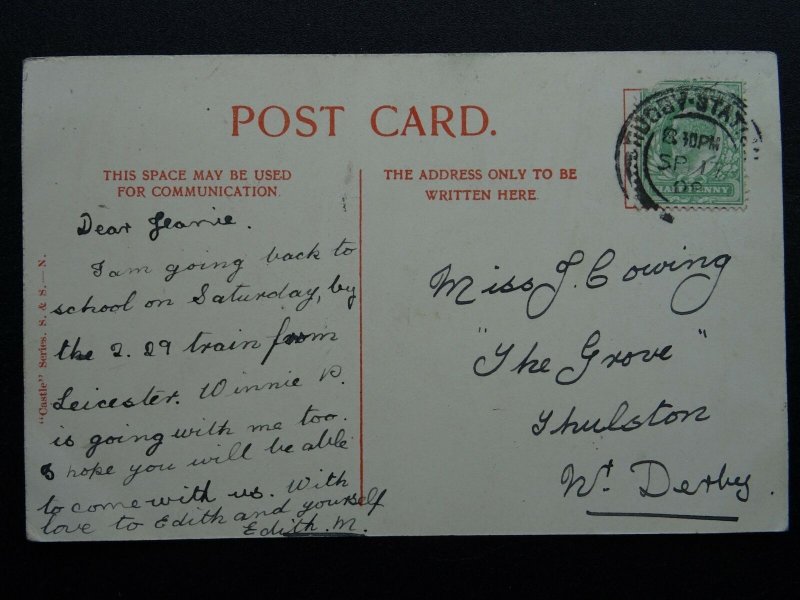 POST CARD.
THIS SPACE MAY BE USED
FOR COMMUNICATION.
THE ADDRESS ONLY TO BE
WRITTEN HERE.
"Castle" Series. S. & S.—N.
Dear Jeanie.
I am going back to
school on Saturday, by
the 2.29 train from
Leicester. Winnie P.
is going with me too.
I hope you will be able
to come with us. With
love to Edith and yourself
Edith. M.
Miss J. Cowing
"The Grove"
Thulston
Nr Derby.
RUGBY·STATI
8 10PM
SP 11
HALFPENNY